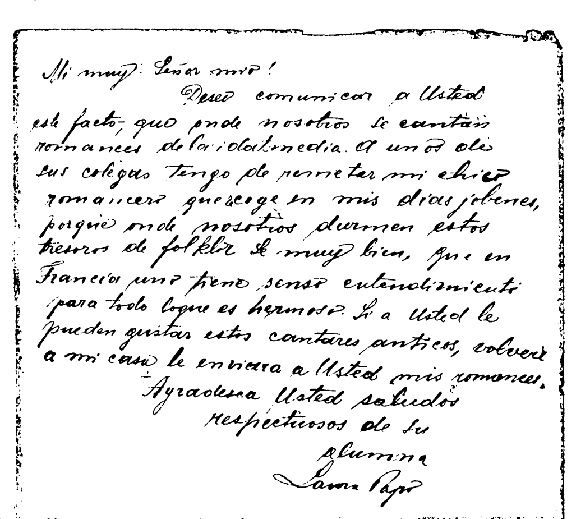 Mi muy Señor mio!
Deseo comunicar a Usted
este facto, que onde nosotros se cantan
romances de la idat media. A unos de
sus colegas tengo de remetar mi chico
romancero que scoge en mis dias jobenes,
porque onde nosotros durmen estos
tresoros de folklor. Se muy bien, que en
Francia uno tiene senso entendimiento
para todo loque es hermoso. Si a Usted le
pueden gustar estos cantares anticos, volveré
a mi casa le enviara a Usted mis romances.
Agradesca Usted saludos
respectuosos de su
alumna
Laura Papo